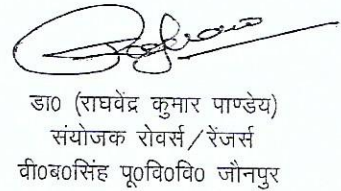 डा0 (राघवेंद्र कुमार पाण्डेय)
संयोजक रोवर्स/रेंजर्स
वी0ब0सिंह पू0वि0वि0 जौनपुर